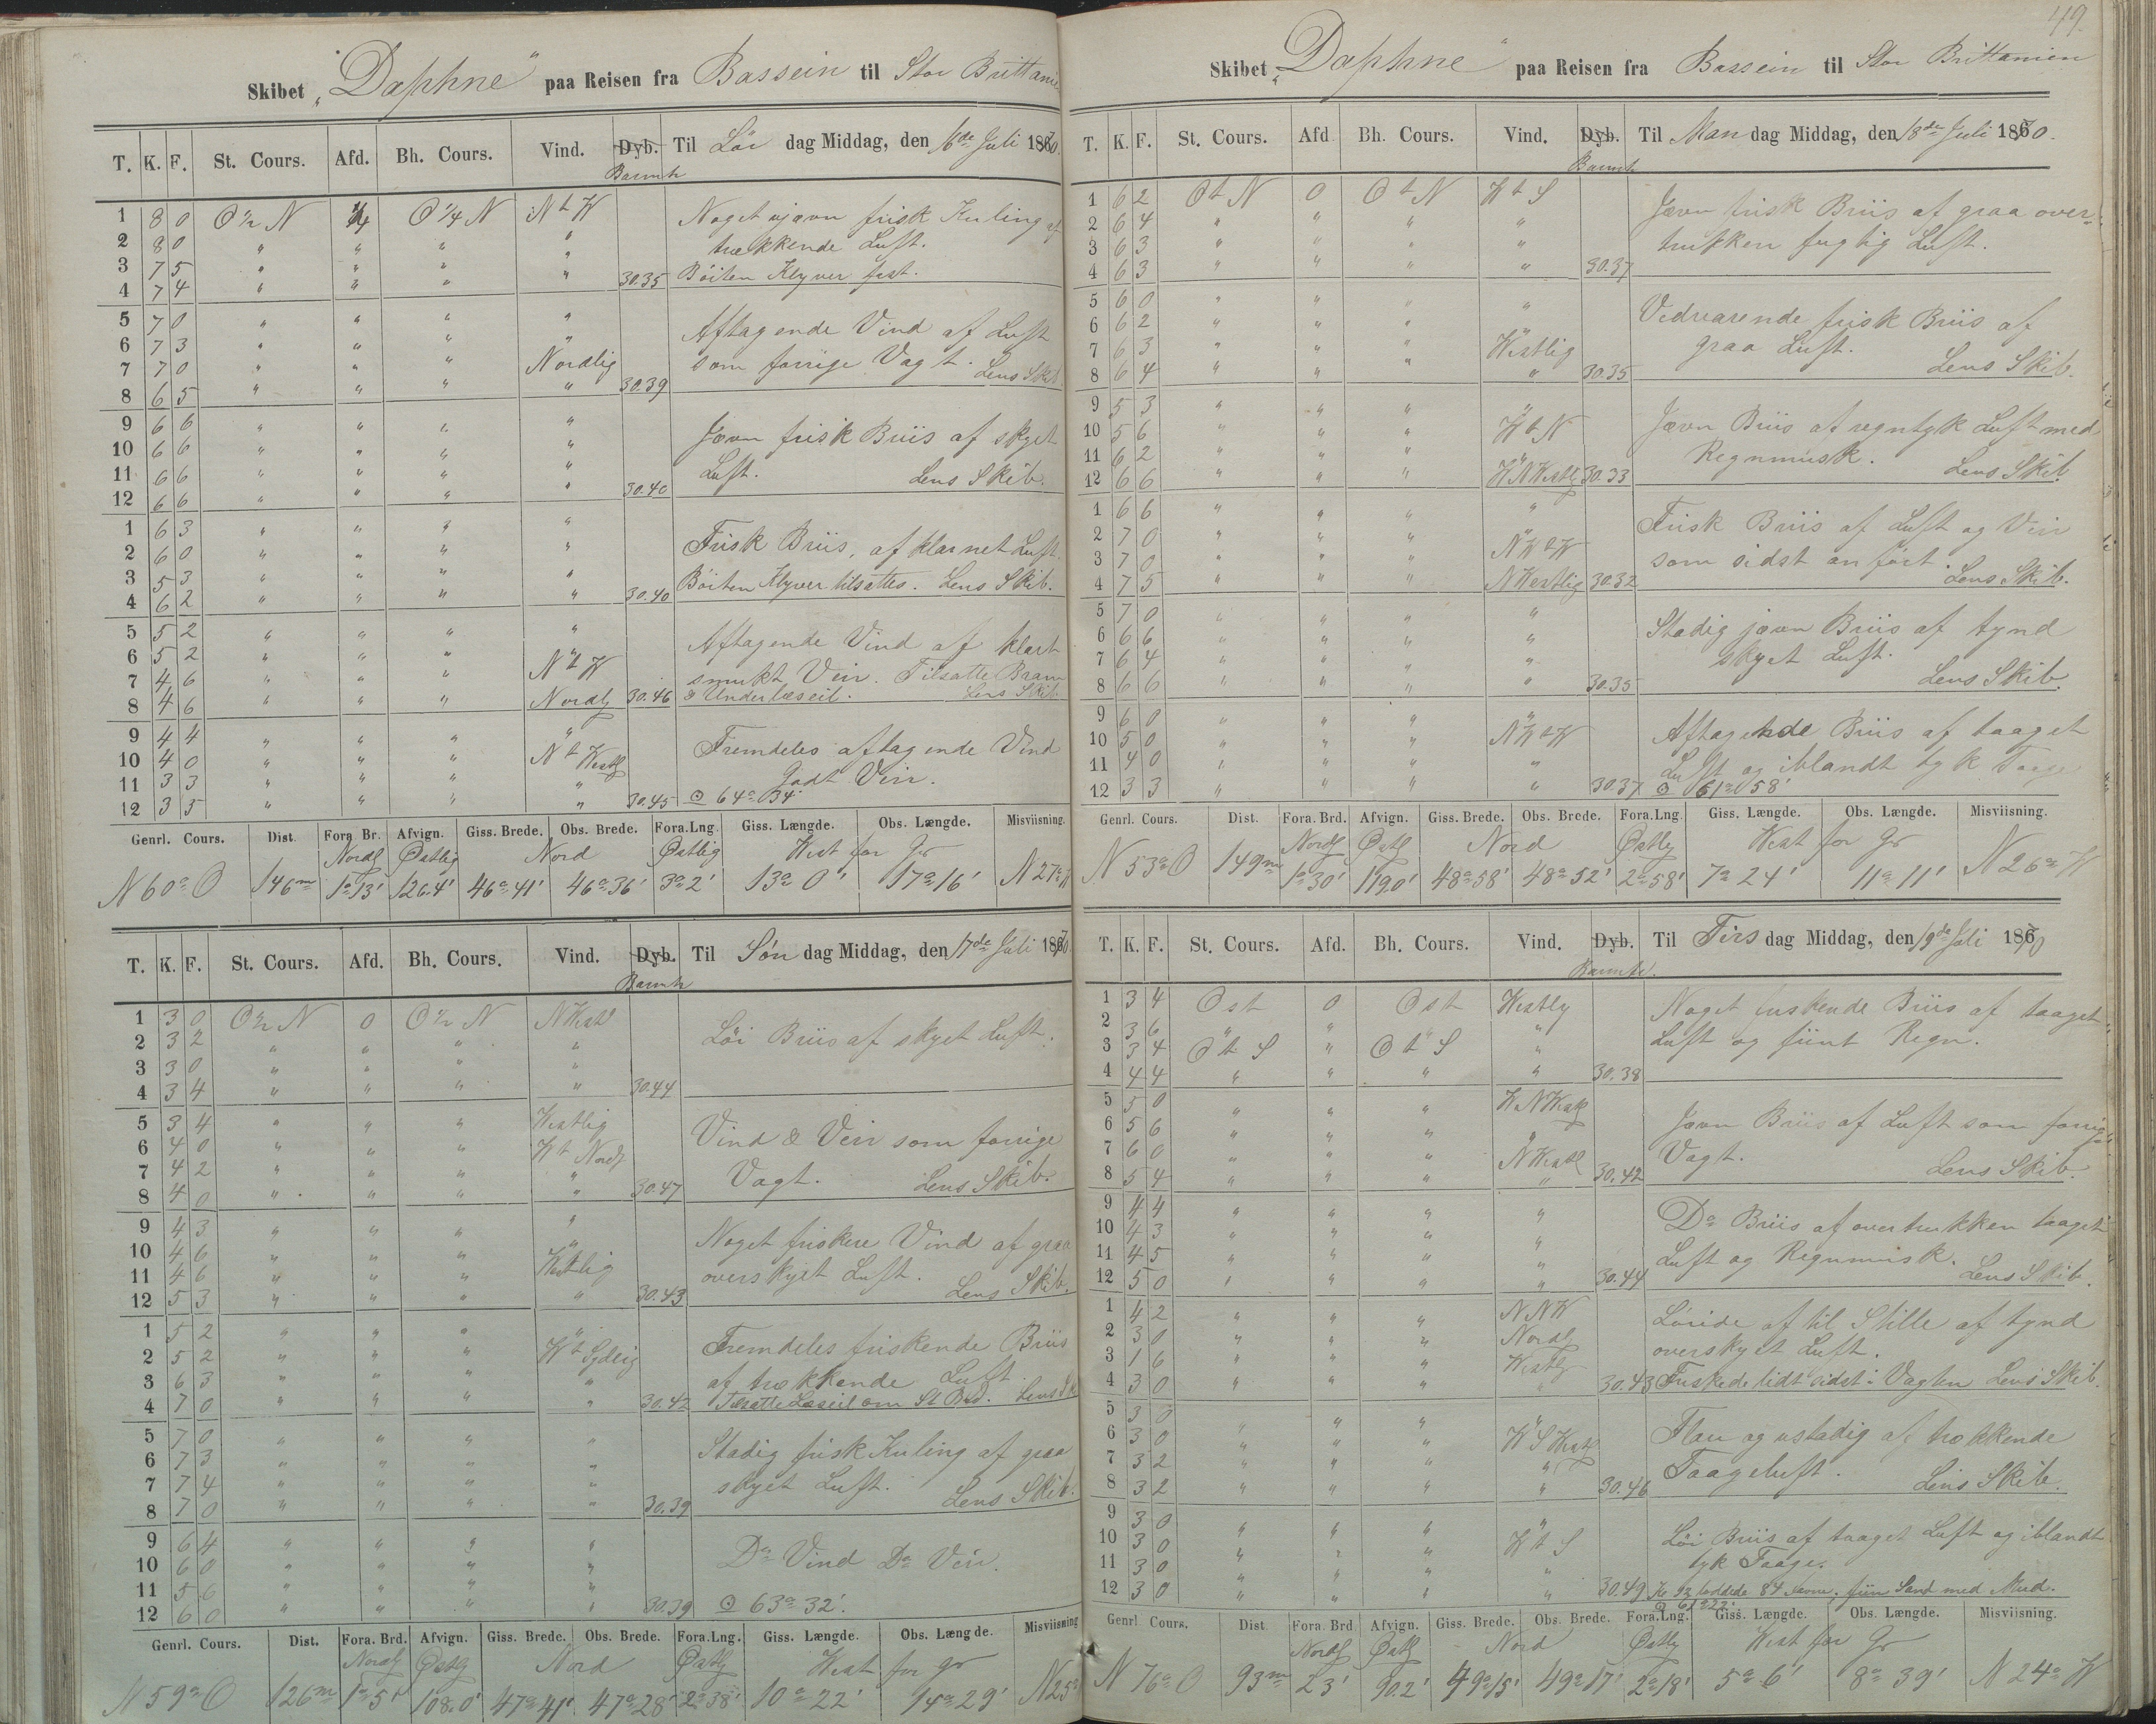 Skibet "Daphne" paa Reisen fra Bassein til Stor Brittanien
T. K. F. St. Cours. Afd. Bh. Cours. Vind. Dyb. Til Lör dag Middag, den 16de Juli 1870.
Barmtr
1 8 0 O½N ¼ O¼N NtW Noget ujævn frisk Kuling af
2 8 0 " " " " trækkende Luft.
3 7 5 " " " " 30.35 Böiten Klyver fast.
4 7 4 " " "
5 7 0 " " " " Aftagende Vind af Luft
6 7 3 " " " "
7 7 0 " " " Nordlig som forrige Vagt. Lens Skib.
8 6 5 " " " " 30.39
9 6 6 " " " " Jævn frisk Briis af skyet
10 6 6 " " " "
11 6 6 " " " " Luft. Lens Skib.
12 6 6 " " " " 30.40
1 6 3 " " " " Frisk Briis, af klarnet Luft.
2 6 0 " " " "
3 5 3 " " " " Böiten Klyver tilsattes. Lens Skib.
4 6 2 " " " " 30.40
5 5 2 " " " " Aftagende Vind af klart
6 5 2 " " " NtW smukt Veir. Tilsatte Bram
7 4 6 " " " " & Underlæseil. Lens Skib
8 4 6 " " " Nordl 30.46
9 4 4 " " " " Fremdeles aftagende Vind
10 4 0 " " " NtWestl Godt Veir.
11 3 3 " " " "
12 3 5 " " " " 30.45 ⊙ 64° 34'
Genrl. Cours. Dist. Fora. Br. Afvign. Giss. Brede. Obs. Brede. Fora. Lng. Giss. Længde. Obs. Længde. Misviisning.
Nordl Østlig Nord Østlig West for Gr
N 60° O 146m 1° 13' 126.4' 46° 41' 46° 36' 3° 2' 13° 0' 17° 16' N 27° W
T. K. F. St. Cours. Afd. Bh. Cours. Vind. Dyb. Til Søn dag Middag, den 17de Juli 1870.
Barmtr
1 3 0 O½N 0 O½N NWestl Löi Briis af skyet Luft.
2 3 2 " " " "
3 3 0 " " " "
4 3 4 " " " " 30.44
5 3 4 " " " Westlig Vind & Veir som forrige
6 4 0 " " " Wt Nordl
7 4 2 " " " " Vagt. Lens Skib.
8 4 0 " " " " 30.47
9 4 3 " " " " Noget friskere Vind af graa
10 4 6 " " " " overskyet Luft.
11 4 6 " " " Westlig Lens Skib.
12 5 3 " " " " 30.43
1 5 2 " " " " Fremdeles friskende Briis
2 5 2 " " " Wt Sydlig af trækkende Luft.
3 6 3 " " " " Tilsatte Læseil om St Brd. Lens Sk
4 7 0 " " " " 30.42
5 7 0 " " " " Stadig frisk Kuling af graa
6 7 3 " " " "
7 7 4 " " " " skyet Luft. Lens Skib.
8 7 0 " " " " 30.39
9 6 4 " " " " Do Vind Do Veir.
10 6 0 " " " "
11 5 6 " " " "
12 6 0 " " " " 30.39 ⊙ 63° 32'.
Genrl. Cours. Dist. Fora. Brd. Afvign. Giss. Brede. Obs. Brede. Fora. Lng. Giss. Længde. Obs. Længde. Misviisning
Nordl Østl Nord Østl West for Gr
N 59° O 126m 1° 5' 108.0' 47° 41' 47° 28' 2° 38' 10° 22' 14° 29' N 25°
49.
Skibet "Daphne" paa Reisen fra Bassein til Stor Brittanien
T. K. F. St. Cours. Afd Bh. Cours. Vind. Dyb. Til Man dag Middag, den 18de Juli 1870.
Barmtr
1 6 2 OtN 0 OtN WtS Jævn frisk Briis af graa over-
2 6 4 " " " " trukken fugtig Luft.
3 6 3 " " " "
4 6 3 " " " " 30.37
5 6 0 " " " " Vedvarende frisk Briis af
6 6 2 " " " " graa Luft.
7 6 3 " " " Westlig Lens Skib.
8 6 4 " " " " 30.35
9 5 3 " " " " Jævn Briis af regntyk Luft med
10 5 6 " " " WtN Regnmusk. Lens Skib.
11 6 2 " " " "
12 6 6 " " " WNWestl 30.33
1 6 6 " " " " Frisk Briis af Luft og Veir
2 7 0 " " " NWtW som sidst anfört. Lens Skib.
3 7 0 " " " "
4 7 5 " " " NWestlig 30.32
5 7 0 " " " " Stadig jævn Briis af tynd
6 6 6 " " " " skyet Luft.
7 6 4 " " " " Lens Skib.
8 6 6 " " " " 30.35
9 6 0 " " " " Aftagende Briis af taaget
10 5 0 " " " NWtW Luft og iblandt tyk Taage
11 4 0 " " " "
12 3 3 " " " " 30.37 ⊙ 61° 58'
Genrl. Cours. Dist. Fora. Brd. Afvign. Giss. Brede. Obs. Brede. Fora. Lng Giss. Længde. Obs. Længde. Misviisning.
Nordl Østl Nord Østlig West for Gr
N 53° O 149m 1° 30' 119.0' 48° 58' 48° 52' 2° 58' 7° 24' 11° 11' N 26° W
T. K. F. St. Cours. Afd. Bh. Cours. Vind. Dyb. Til Tirs dag Middag, den 19de Juli 1870
Barmtr.
1 3 4 Ost 0 Ost Westlig Noget friskende Briis af taaget
2 3 6 " " " " Luft og fiint Regn.
3 3 4 OtS " OtS "
4 4 4 " " " " 30.38
5 5 0 " " " WNWestl Jævn Briis af Luft som forrige
6 5 6 " " " " Vagt.
7 6 0 " " " NWestl Lens Skib.
8 5 4 " " " " 30.42
9 4 4 " " " " Do Briis af overtrukken taaget
10 4 3 " " " " Luft og Regnmusk.
11 4 5 " " " " Lens Skib.
12 5 0 " " " " 30.44
1 4 2 " " " NNW Löiede af til Stille af tynd
2 3 0 " " " Nordl overskyet Luft.
3 1 6 " " " Westlig
4 3 0 " " " " 30.43 Friskede lidt sidst i Vagten Lens Skib.
5 3 0 " " " " Flau og ustadig af trækkende
6 3 0 " " " WSWestl Taageluft.
7 3 2 " " " " Lens Skib.
8 3 2 " " " " 30.46
9 3 0 " " " " Löi Briis af taaget Luft og iblandt
10 3 0 " " " WtS tyk Taage.
11 3 0 " " " "
12 3 0 " " " " 30.49 Kl 12 loddede 84 Favne, fiin Sand med Mud.
⊙ 61° 22'
Genrl Cours. Dist Fora. Brd Afvign. Giss. Brede. Obs. Brede. Fora. Lng. Giss. Længde. Obs. Længde. Misviisning.
Nordl Østl Nord Østlig West for Gr
N 76° O 93m 23' 90.2' 49° 15' 49° 17' 2° 18' 5° 6' 8° 39' N 24° W